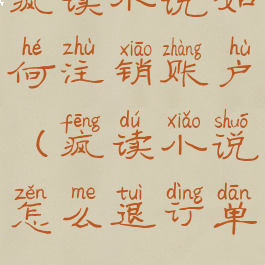 疯读小说如
hé zhù xiāo zhàng hù
何注销账户
fēng dú xiǎo shuō
(疯读小说
zěn me tuì dìng dān
怎么退订单